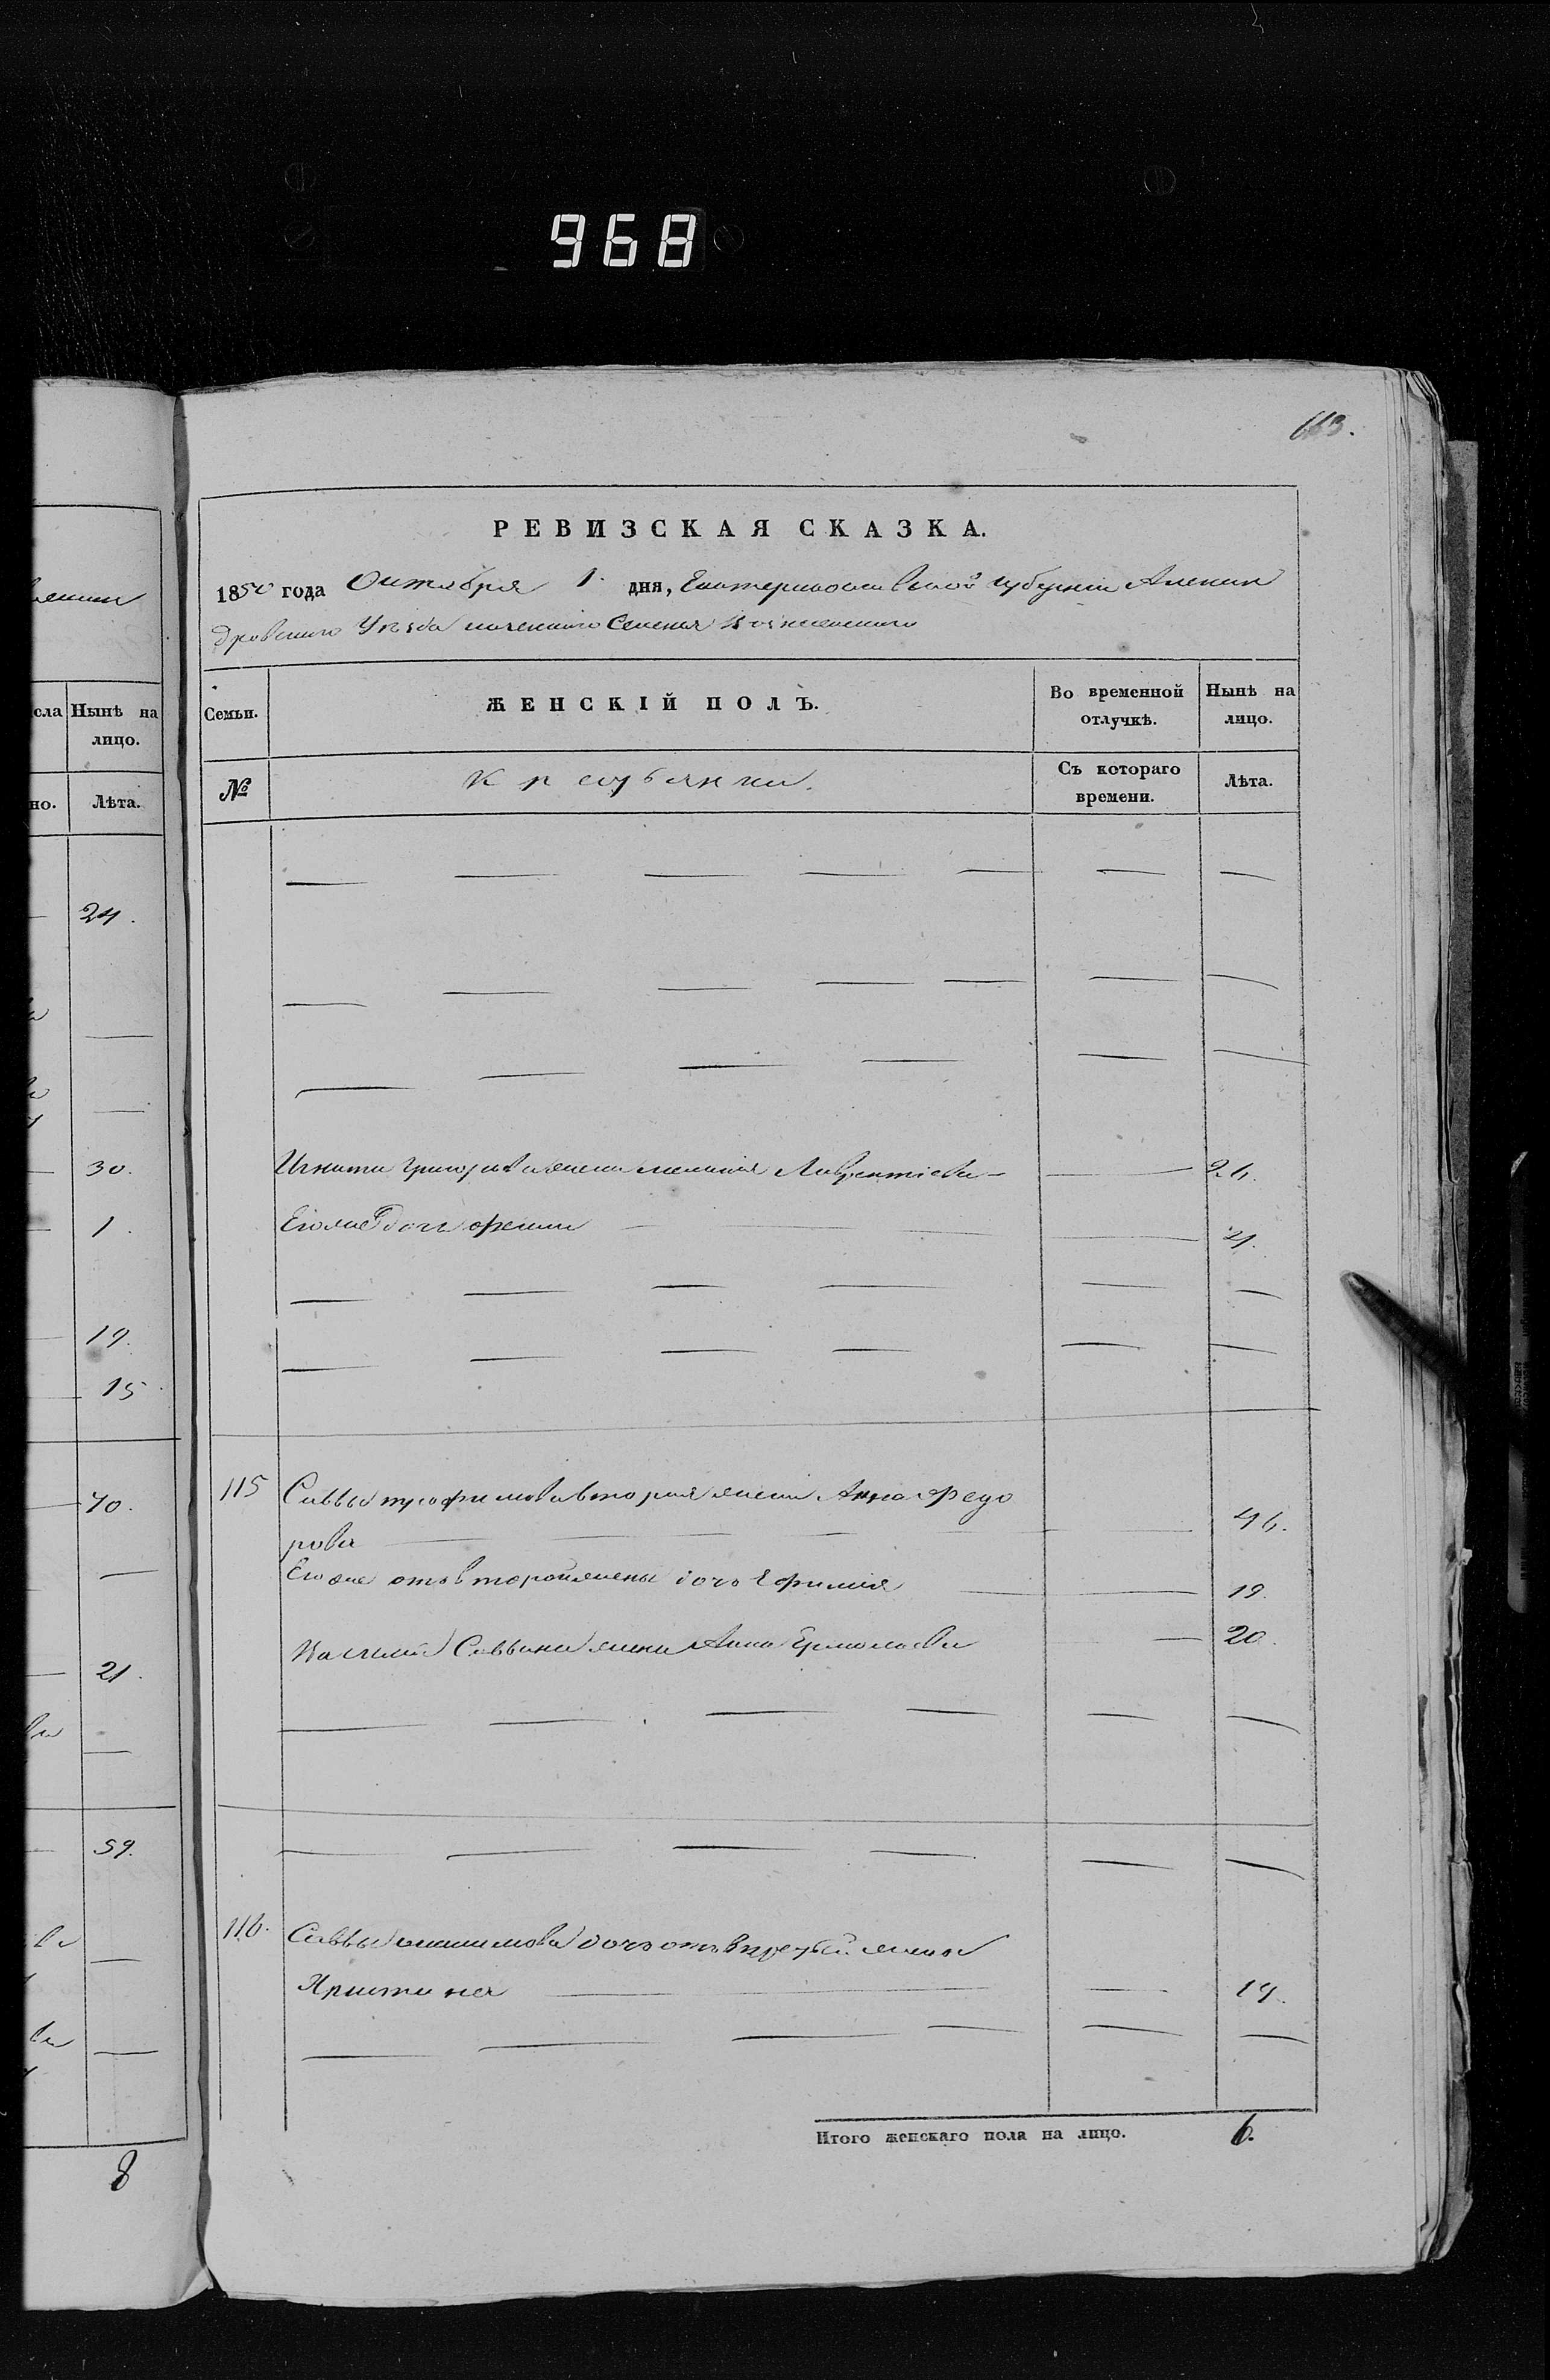 968
113.
РЕВИЗСКАЯ СКАЗКА.
1850 года Октября 1. дня, Екатеринославской губернии Алексан
дровского Уезда казенного Селения
Семьи. ЖЕНСКІЙ ПОЛЪ. Во временной отлучкѣ. Нынѣ на лицо.
№ Крестьянки. Съ котораго времени. Лѣта.
Игната Григорьева жена Мелания Лаврентіева 26.
Его же дочь 4.
115 Саввы Трофимова вторая жена Анна Федо
рова 46.
Его же отъ второй жены дочь Ефимия 19.
Саввина жена Анна Ермолаева 20.
116. Саввы дочь отъ первой жены
Христина 19.
Итого женскаго пола на лицо. 6.
сла Нынѣ на
лицо.
но. Лѣта.
24.
30.
1.
19.
15
40.
21.
59.
8